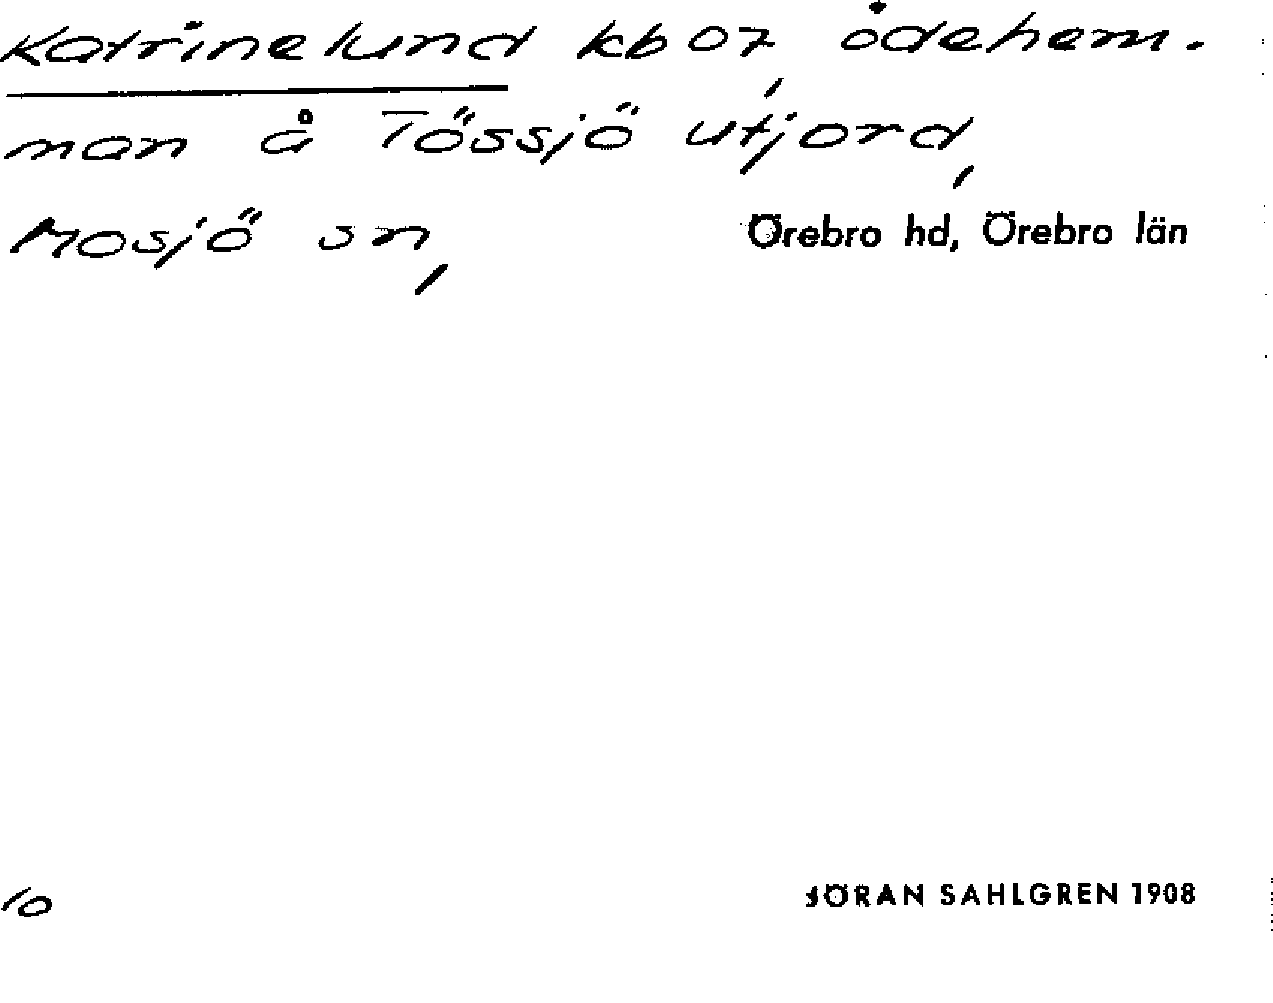 Katrinelund kb 07, ödehem.
man å Tössjö utjord,
Mosjö sn, Örebro hd, Örebro län
10 JÖRAN SAHLGREN 1908